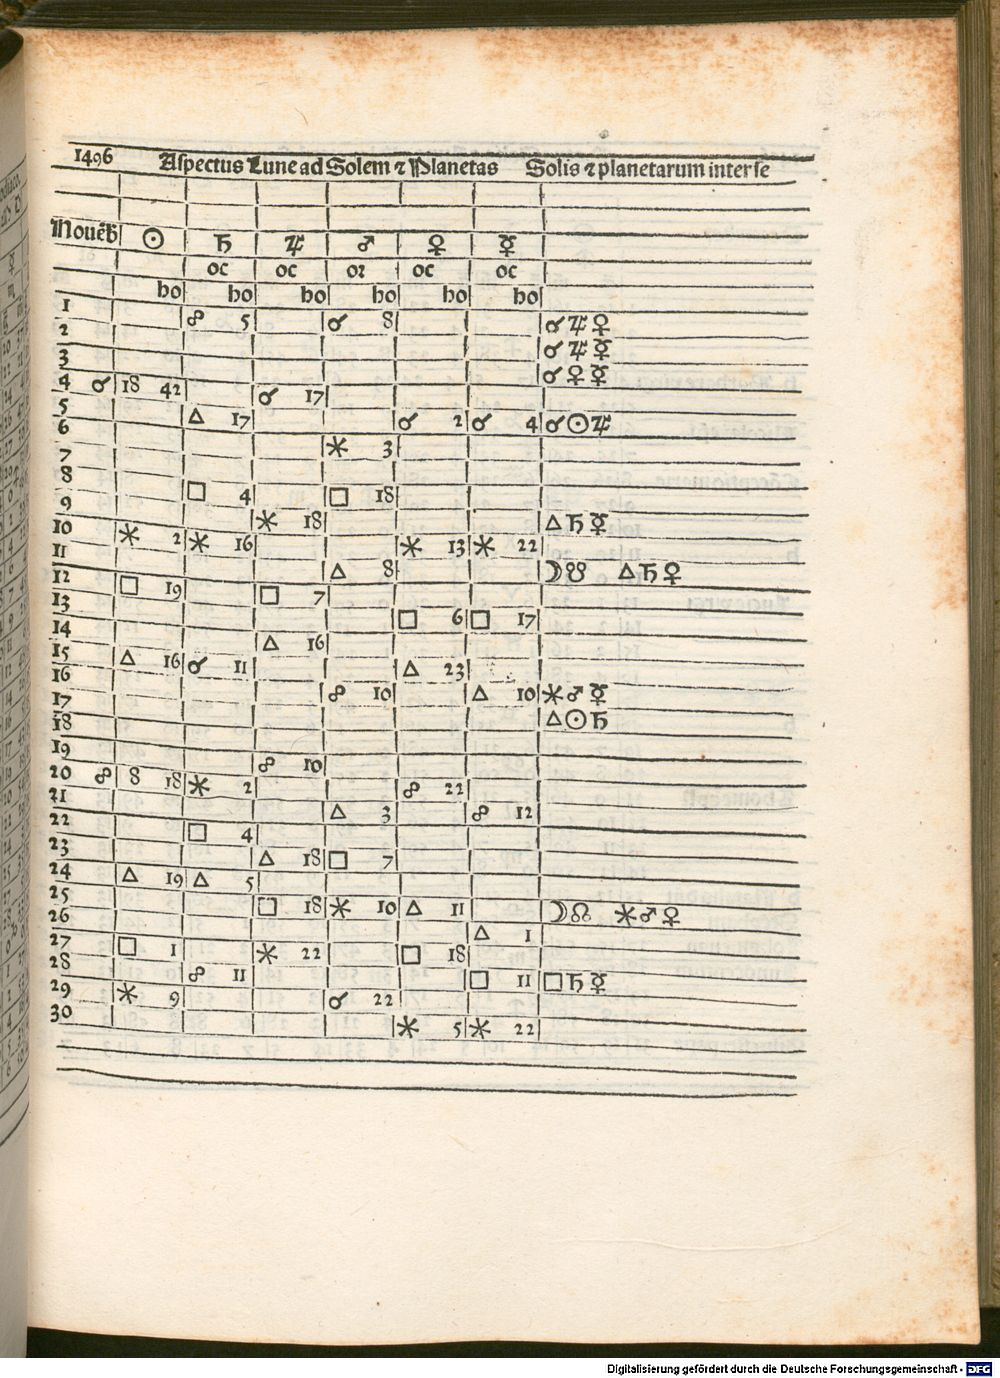 1496 Aspectus Lune ad Solem ⁊ Planetas Solis ⁊ planetarum inter se
Nouẽb ☉ ♄ ♃ ♂ ♀ ☿
oc oc or oc oc
ho ho ho ho ho ho
1 ☍ 5 ☌ 8 ☌♃♀
2 ☌♃☿
3 ☌♀☿
4 ☌ 18 42 ☌ 17
5 △ 17 ☌ 2 ☌ 4 ☌☉♃
6 ✶ 3
7
8 □ 4 □ 18
9 ✶ 18 △♄☿
10 ✶ 2 ✶ 16 ✶ 13 ✶ 22
11 △ 8 ☽☋ △♄♀
12 □ 19 □ 7
13 □ 6 □ 17
14 △ 16
15 △ 16 ☌ 11 △ 23
16 ☍ 10 △ 10 ✶♂☿
17 △☉♄
18
19 ☍ 10
20 ☍ 8 18 ✶ 2 ☍ 22
21 △ 3 ☍ 12
22 □ 4
23 △ 18 □ 7
24 △ 19 △ 5
25 □ 18 ✶ 10 △ 11 ☽☊ ✶♂♀
26 △ 1
27 □ 1 ✶ 22 □ 18
28 ☍ 11 □ 11 □♄☿
29 ✶ 9 ☌ 22
30 ✶ 5 ✶ 22
Digitalisierung gefördert durch die Deutsche Forschungsgemeinschaft - DFG